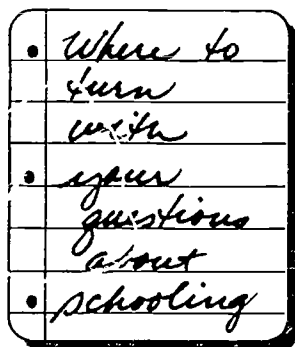 Where to
turn
with
your
questions
about
schooling